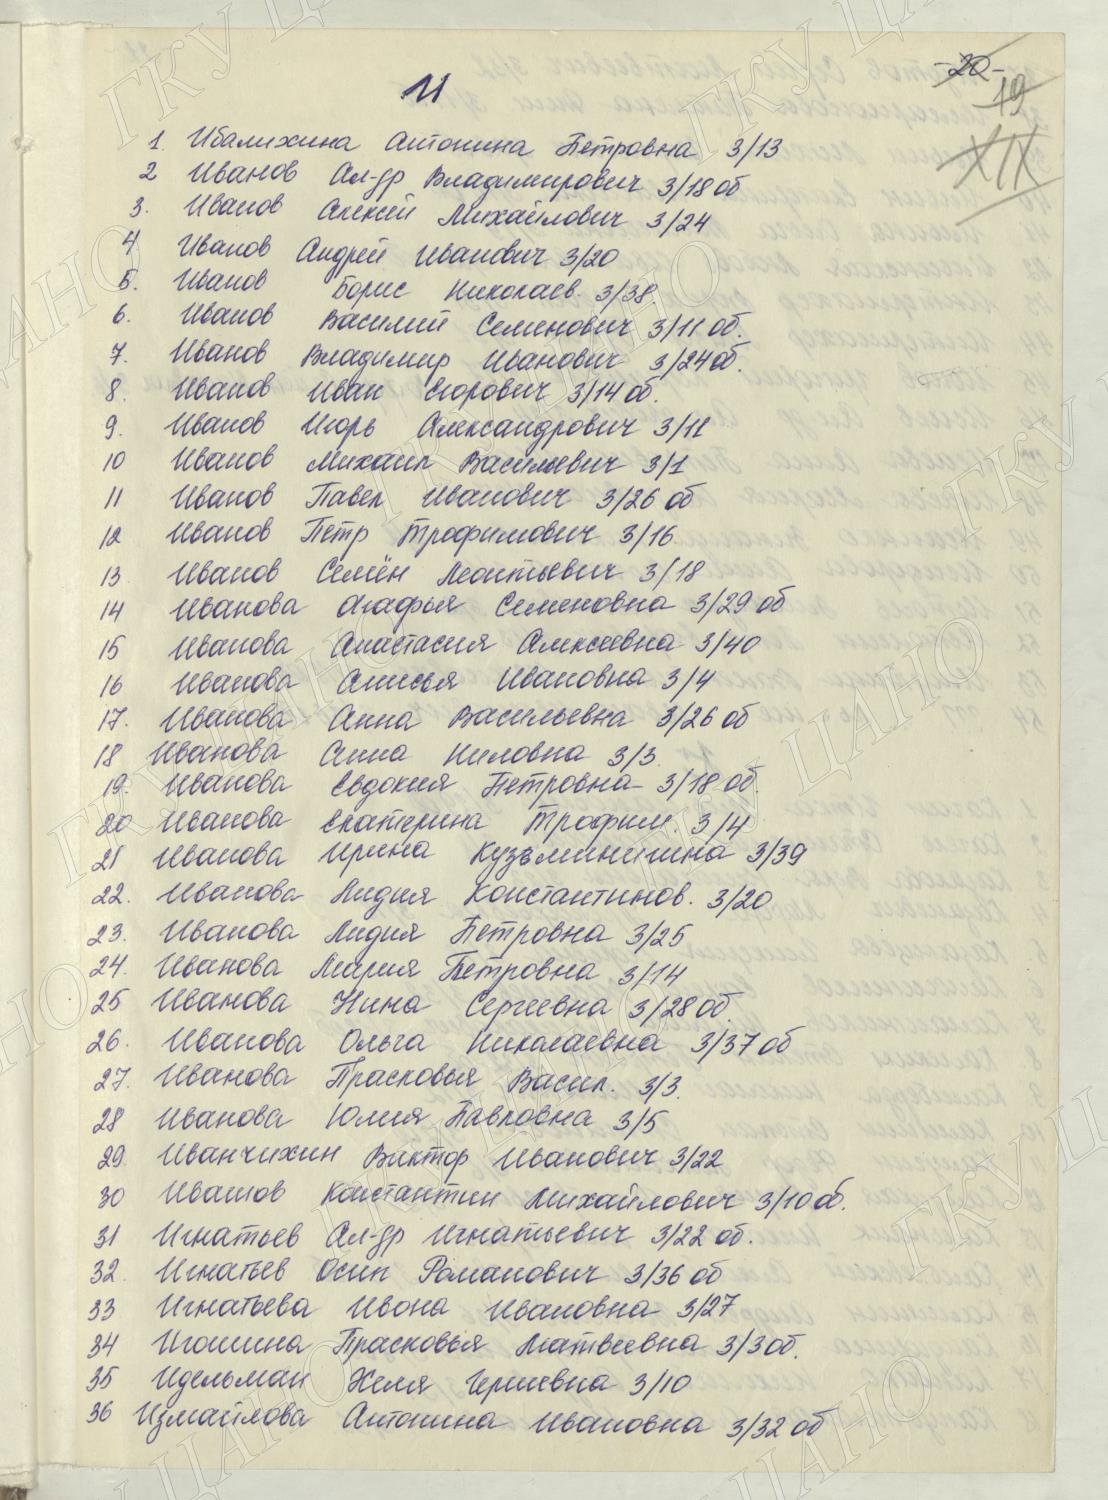 -20-
19
XIX
И
1. Ибалихина Антонина Петровна 3/13
2 Иванов Ал-др Владимирович 3/18 об
3. Иванов Алексей Михайлович 3/24
4. Иванов Андрей Иванович 3/20
5. Иванов Борис Николаев. 3/38.
6. Иванов Василий Семенович 3/11 об.
7. Иванов Владимир Иванович 3/24 об.
8. Иванов Иван Егорович 3/14 об.
9. Иванов Игорь Александрович 3/11
10 Иванов Михаил Васильевич 3/1
11 Иванов Павел Иванович 3/26 об
12 Иванов Петр Трофимович 3/16
13 Иванов Семён Леонтьевич 3/18
14 Иванова Агафья Семеновна 3/29 об
15 Иванова Анастасия Алексеевна 3/40
16 Иванова Анисья Ивановна 3/4
17. Иванова Анна Васильевна 3/26 об
18 Иванова Анна Ниловна 3/3.
19. Иванова Евдокия Петровна 3/18 об.
20 Иванова Екатерина Трофим. 3/4
21 Иванова Ирина Кузьминична 3/39
22. Иванова Лидия Константинов. 3/20
23. Иванова Лидия Петровна 3/25
24. Иванова Мария Петровна 3/14
25 Иванова Нина Сергеевна 3/28 об.
26. Иванова Ольга Николаевна 3/37 об
27. Иванова Прасковья Васил. 3/3.
28 Иванова Юлия Павловна 3/5
29. Иванчихин Виктор Иванович 3/22
30 Ивашов Константин Михайлович 3/10 об.
31 Игнатьев Ал-др Игнатьевич 3/22 об.
32. Игнатьев Осип Романович 3/36 об
33 Игнатьева Ивона Ивановна 3/27
34 Игошина Прасковья Матвеевна 3/3 об.
35 Идельман Хеля Гершевна 3/10
36 Измайлова Антонина Ивановна 3/32 об
ГКУ ЦАНО